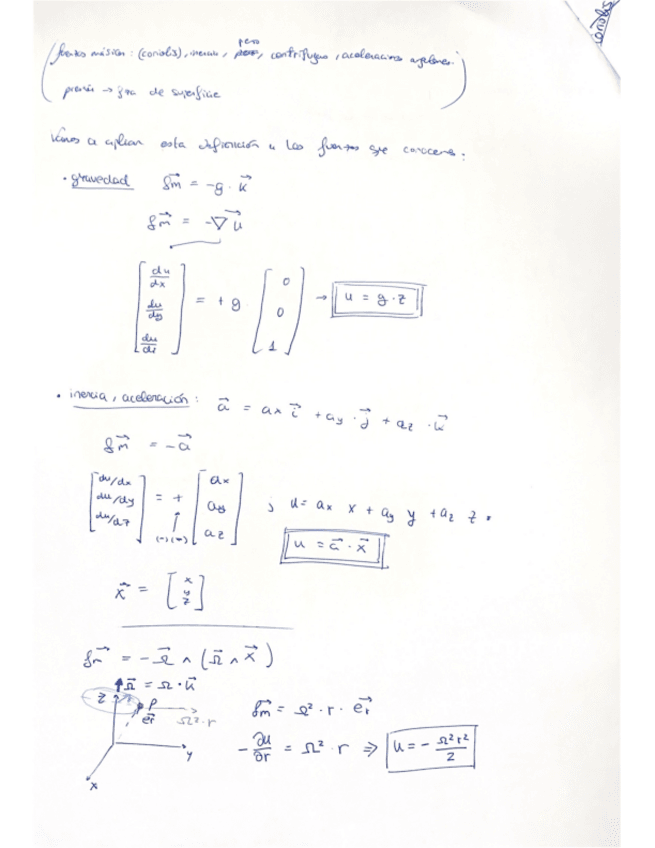 coriolis
peso
(fuerzas másicas: (coriolis), inercia, peso, centrífugas, aceleraciones
presión → fza de superficie
Vamos a aplicar esta definición a las fuerzas que conocemos:
· gravedad f⃗m = -g · k⃗
f⃗m = -∇⃗u
[du/dx du/dy du/dz] = + g [0 0 1] → u = g · z
· inercia, aceleración: a⃗ = ax i⃗ + ay · j⃗ + az · k⃗
f⃗m = -a⃗
[du/dx du/dy du/dz] = + [ax ay az] ; u = ax x + ay y + az z .
(-)(-)
u = a⃗ · x⃗
x⃗ = [x y z]
f⃗m = - Ω⃗ ∧ (Ω⃗ ∧ x⃗)
Ω⃗ = Ω · k⃗
z P
e⃗r Ω² · r
y
x
f⃗m = Ω² · r · e⃗r
-∂u/∂r = Ω² · r ⇒ u = - Ω²r²/2